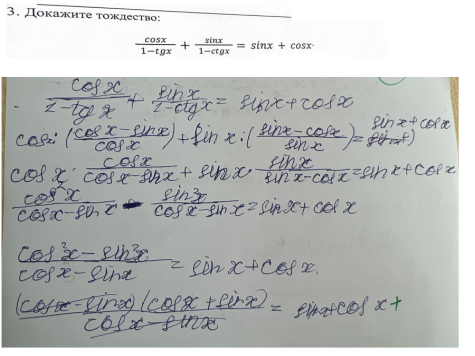 3. Докажите тождество:
cosx/(1−tgx) + sinx/(1−ctgx) = sinx + cosx.
cosx/(1-tgx) + sinx/(1-ctgx) = sinx+cosx
cosx : ((cosx-sinx)/cosx) + sinx : ((sinx-cosx)/sinx) = sinx+cosx
cosx · cosx/(cosx-sinx) + sinx · sinx/(sinx-cosx) = sinx+cosx
cos²x/(cosx-sinx) - sin²x/(cosx-sinx) = sinx+cosx
(cos²x-sin²x)/(cosx-sinx) = sinx+cosx.
(cosx-sinx)(cosx+sinx)/(cosx-sinx) = sinx+cosx +